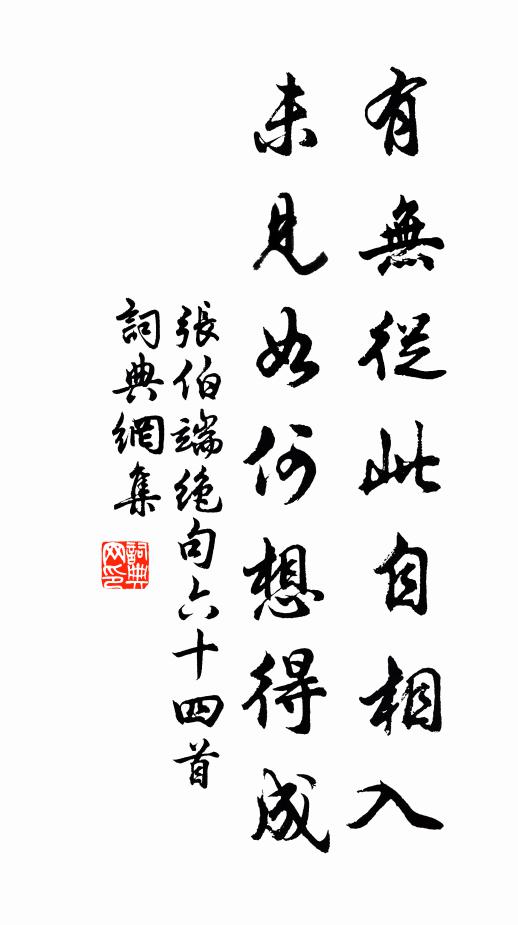 有無從此自相入
未見如何想得成
張伯端絶句六十四首
詞典網集
詞典
网印